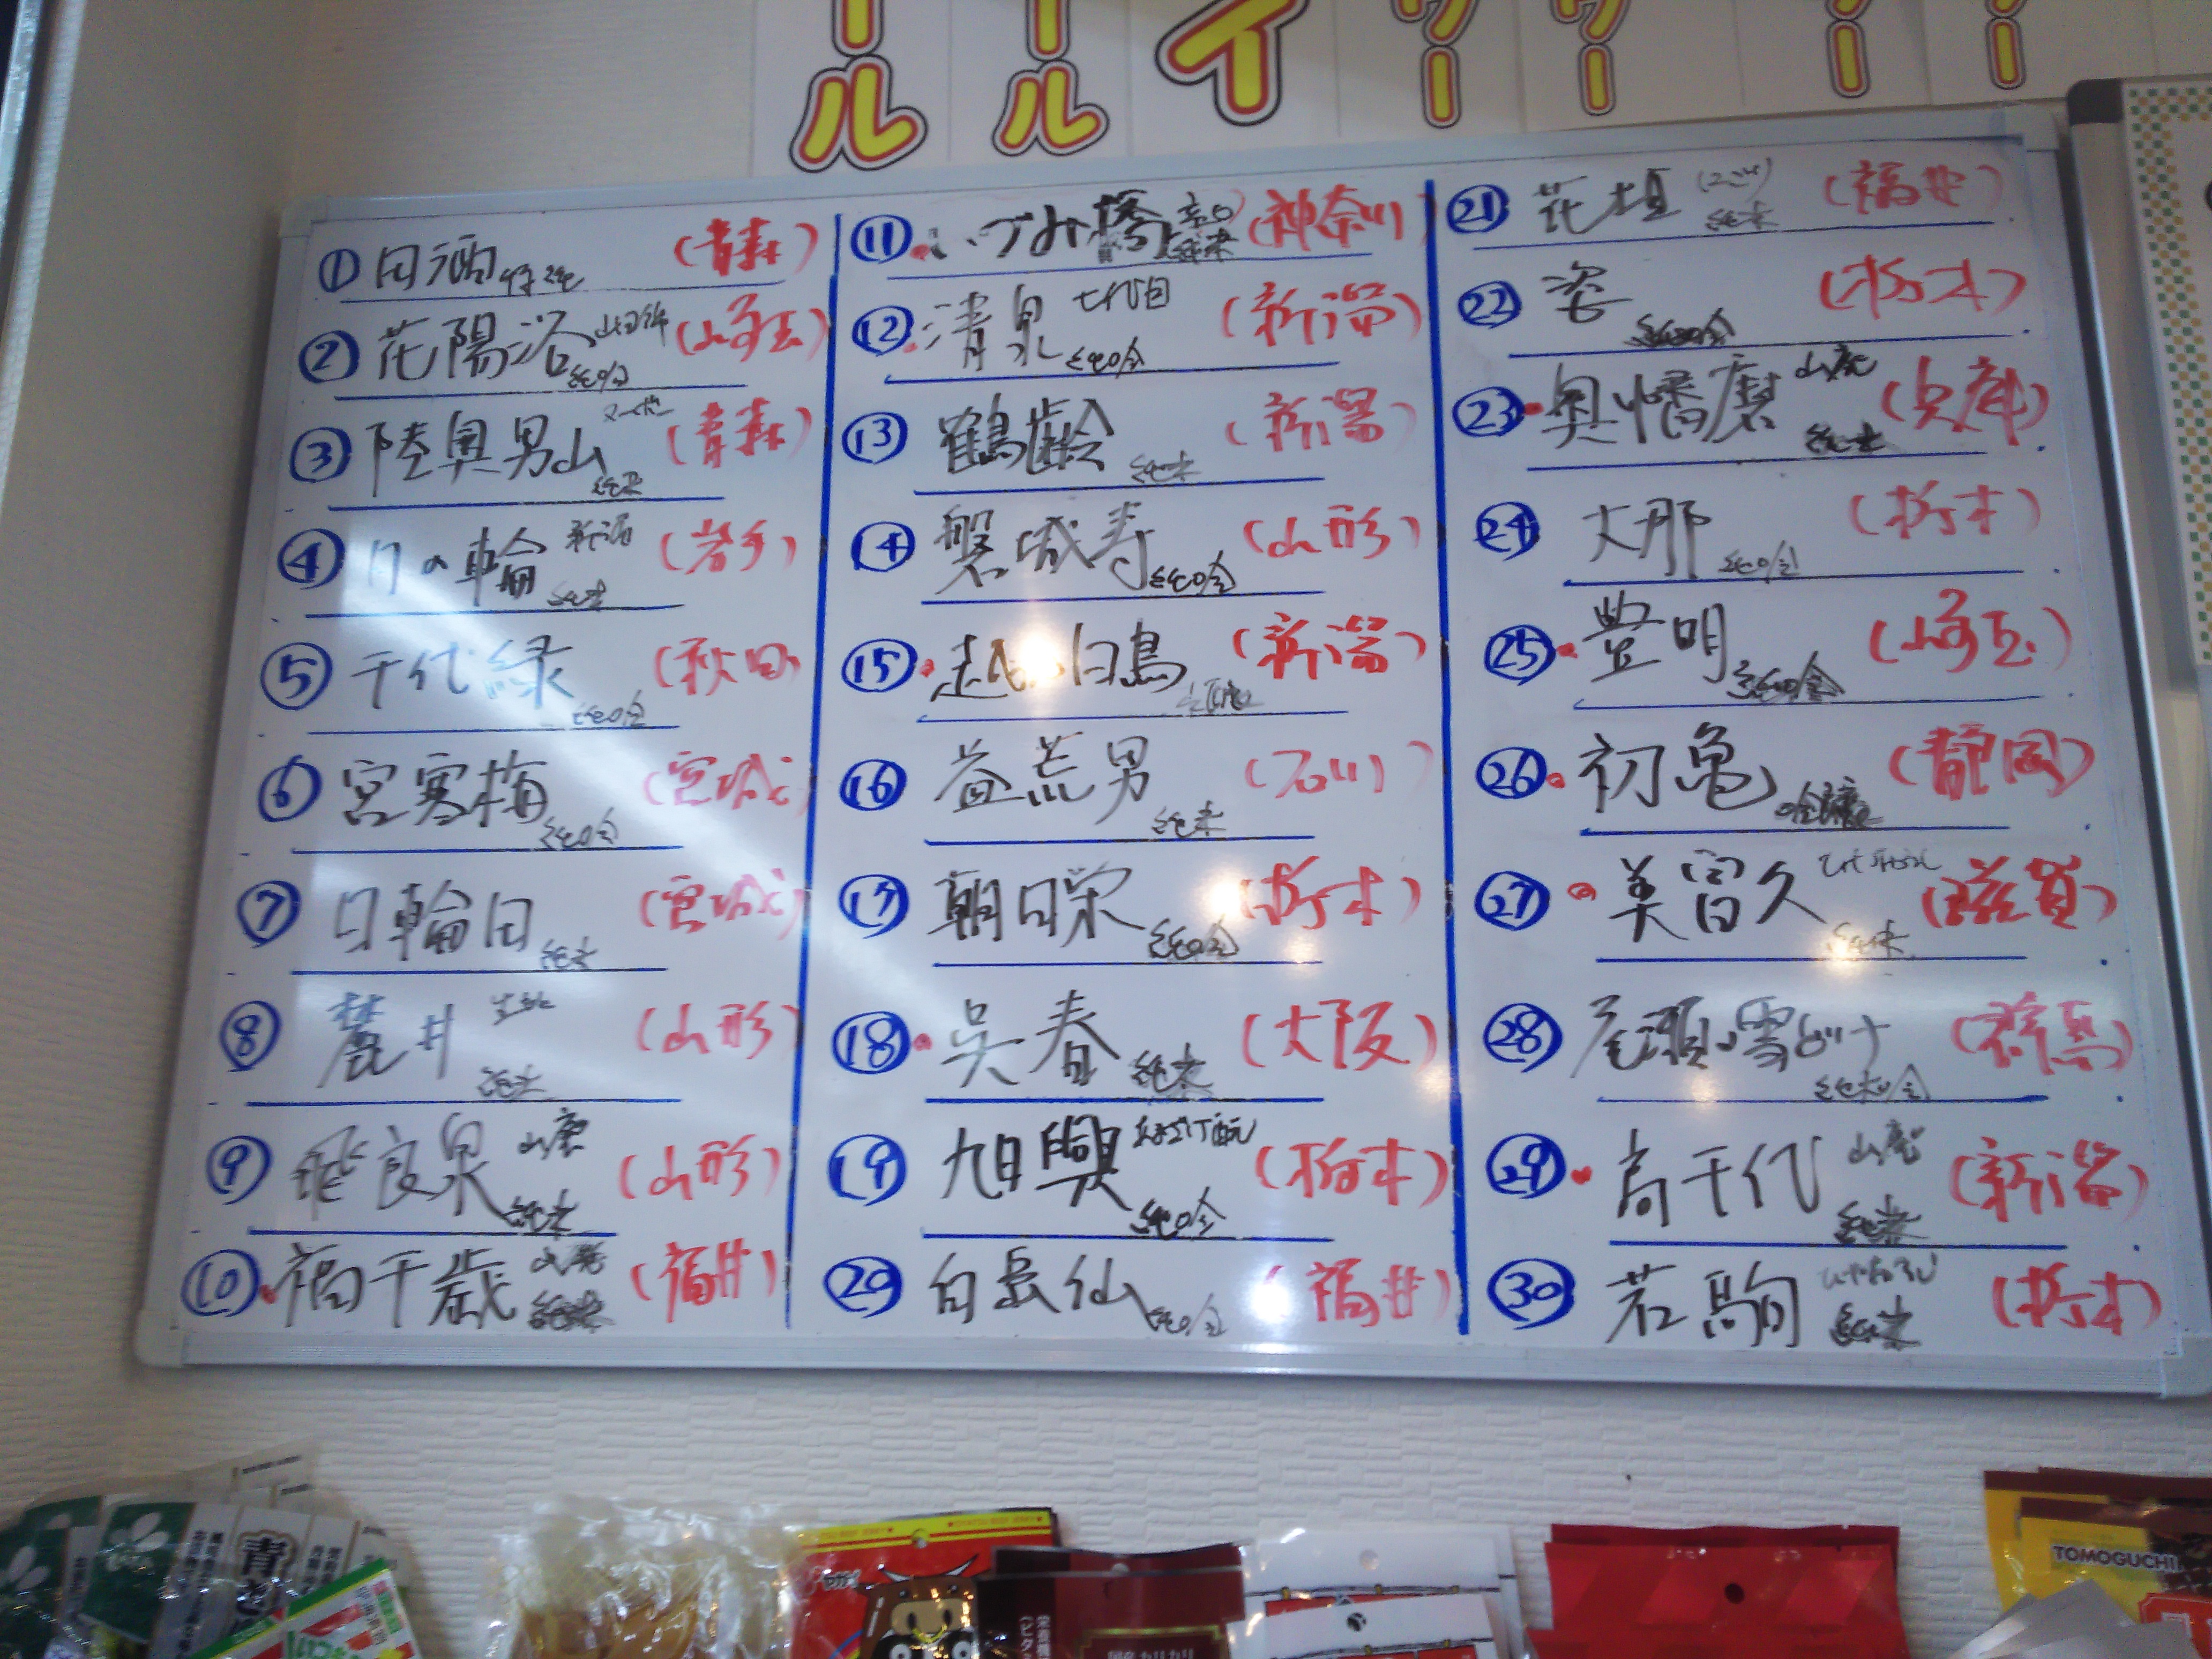 ール
ール
イ
ワー
ワー
ー
ー
① 田酒 特純 (青森)
② 花陽浴 山田錦 純吟 (埼玉)
③ 陸奥男山 ヌーボー 純米 (青森)
④ 月の輪 新酒 純米 (岩手)
⑤ 千代緑 純吟 (秋田)
⑥ 宮寒梅 純吟 (宮城)
⑦ 日輪田 純米 (宮城)
⑧ 麓井 生酛 純米 (山形)
⑨ 飛良泉 山廃 純米 (山形)
⑩ 福千歳 山廃 純米 (福井)
⑪ いづみ橋 辛口 純米 (神奈川)
⑫ 清泉 七代目 純吟 (新潟)
⑬ 鶴齢 純米 (新潟)
⑭ 磐城寿 純吟 (山形)
⑮ 越の白鳥 (新潟)
⑯ 益荒男 純米 (石川)
⑰ 朝日栄 純吟 (栃木)
⑱ 呉春 純米 (大阪)
⑲ 旭興 純吟 (栃木)
⑳ 白岳仙 純吟 (福井)
㉑ 花垣 (にごり) 純米 (福井)
㉒ 姿 純吟 (栃木)
㉓ 奥播磨 山廃 純米 (兵庫)
㉔ 大那 純吟 (栃木)
㉕ 豊明 純吟 (埼玉)
㉖ 初亀 吟醸 (静岡)
㉗ 美冨久 ひやおろし 純米 (滋賀)
㉘ 尾瀬の雪どけ 純米吟 (群馬)
㉙ 高千代 山廃 純米 (新潟)
㉚ 若駒 ひやおろし 純米 (栃木)
青
TOMOGUCHI